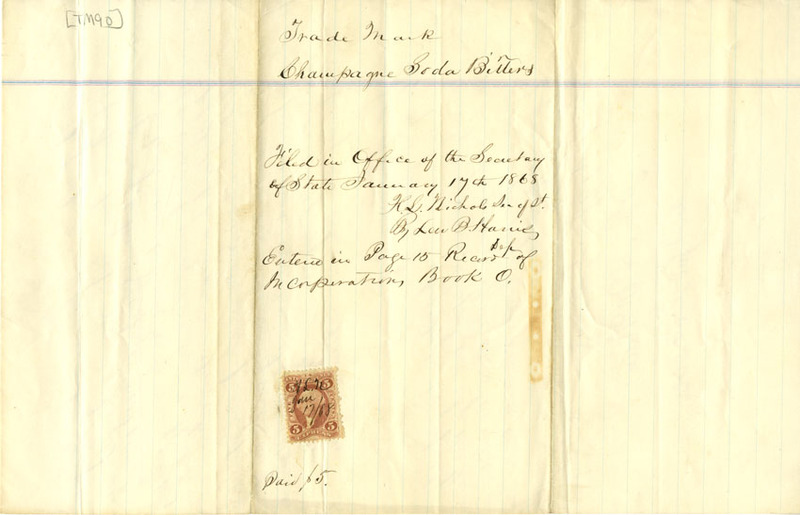 [TM90]
Trade Mark
Champagne Soda Bitters
Filed in Office of the Secretary
of State January 17th 1868
H. L. Nichols Sec of St.
By Lew B. Harris
Dep
Entered in Page 15 Record of
Incorporations Book O.
5 5
H L N
Jan
17/68
5 5
Paid $5.